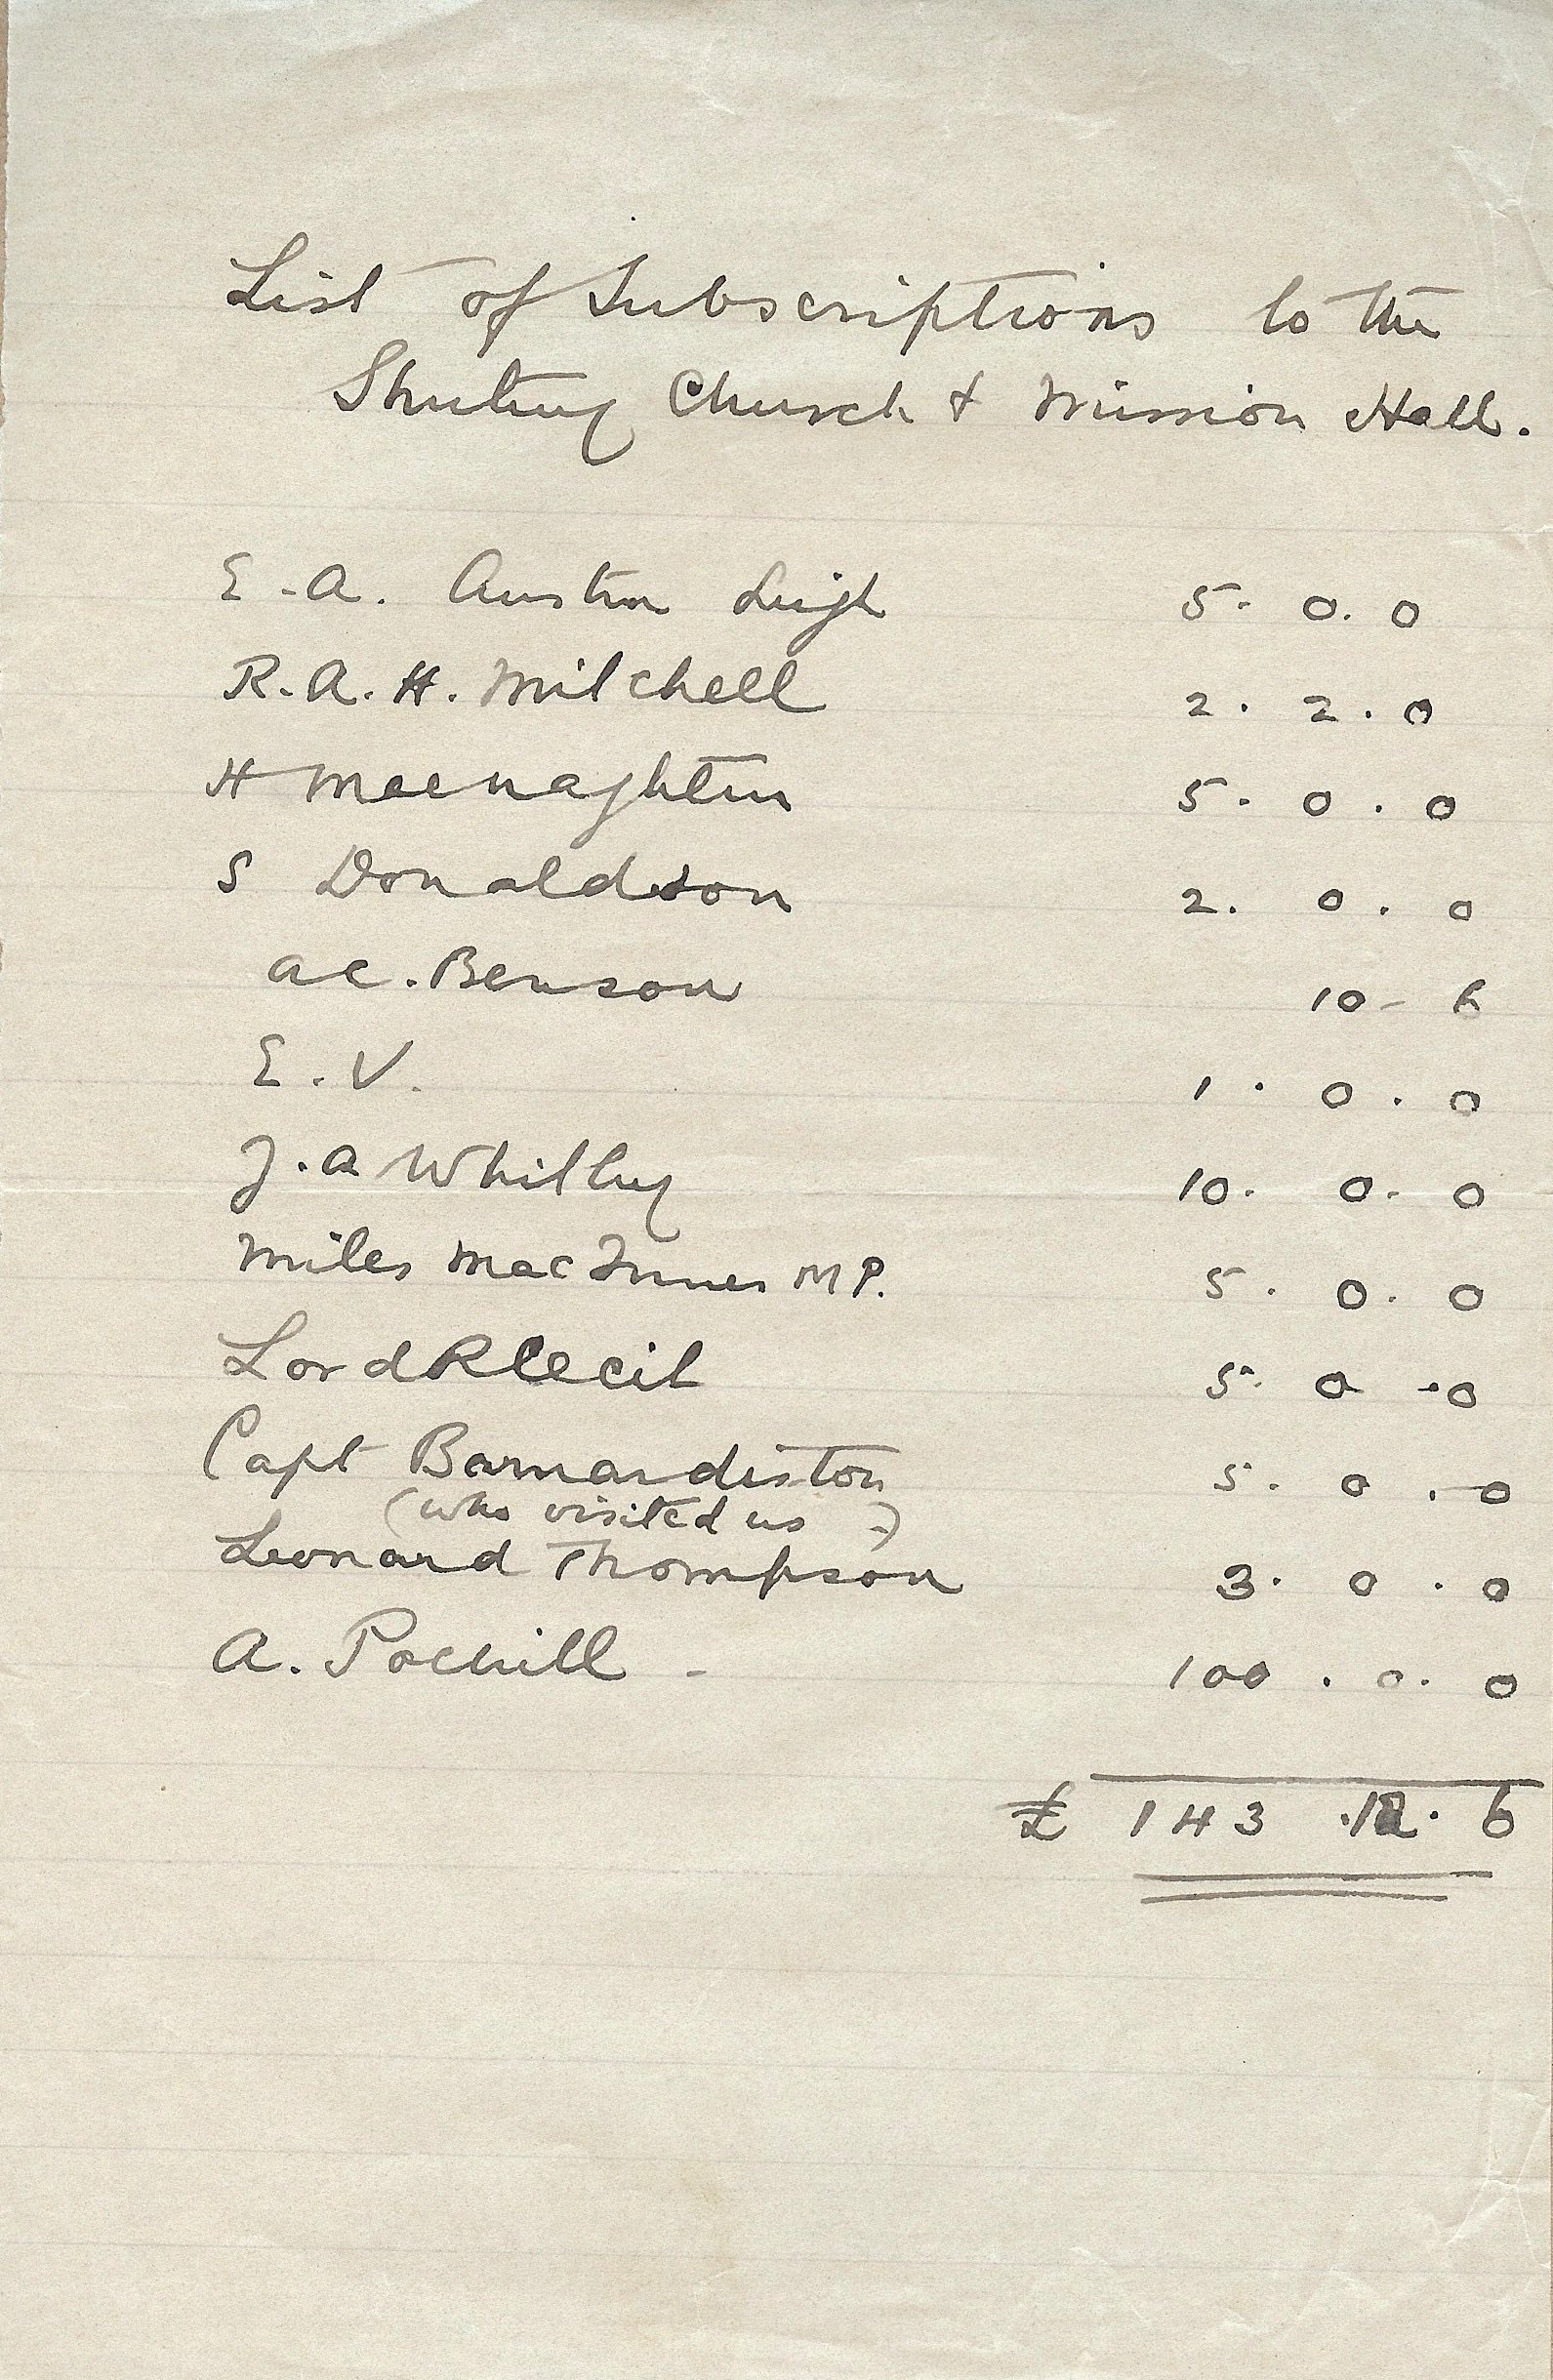 List of Subscriptions to the
Shuting Church & Mission Hall.
E. A. Austen Leigh 5. 0. 0
R. A. H. Mitchell 2. 2. 0
H Macnaghten 5. 0. 0
S Donaldson 2. 0. 0
A C. Benson 10 - 6
E. V. 1. 0. 0
J. A Whitley 10. 0. 0
Miles MacInnes MP. 5. 0. 0
Lord R Cecil 5. 0. 0
Capt Barnardiston 5. 0. 0
(who visited us)
Leonard Thompson 3. 0. 0
A. Pochill - 100. 0. 0
£ 143. 12. 6